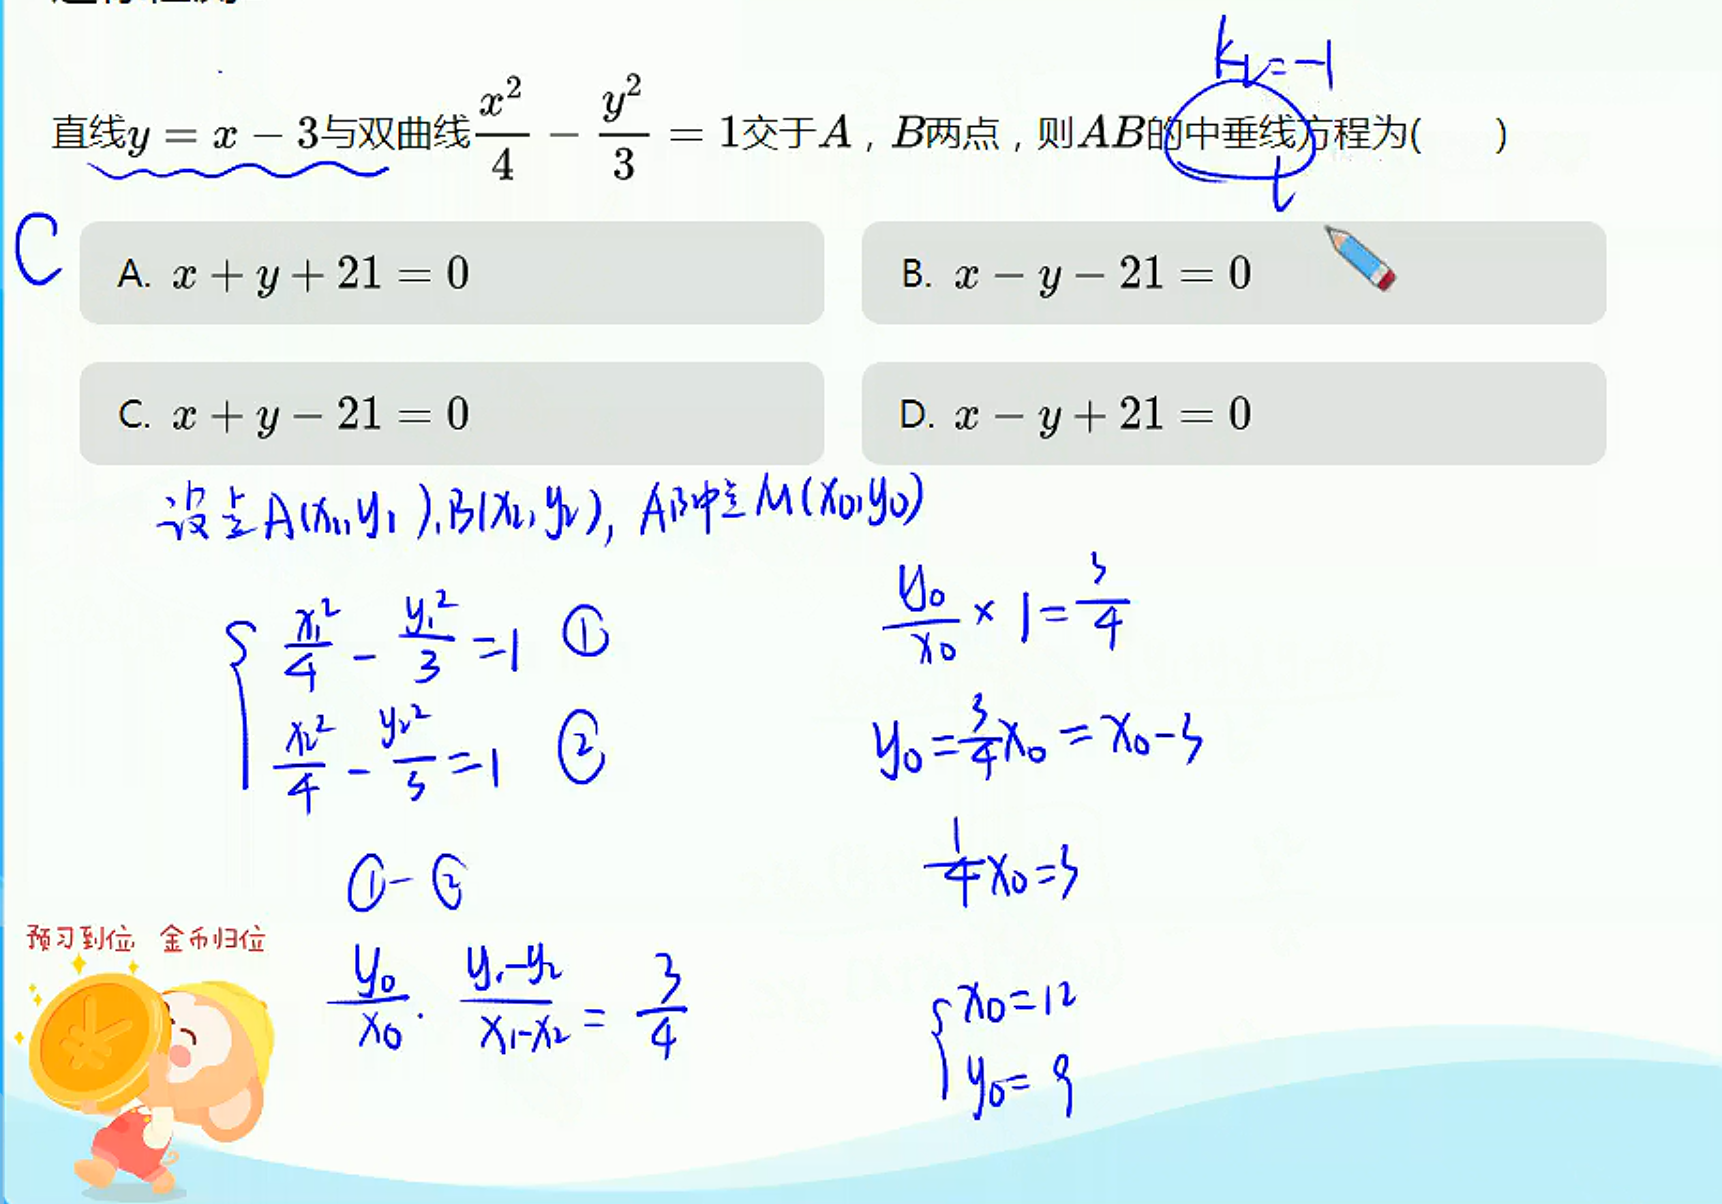 k_l = -1
直线y = x - 3与双曲线\frac{x^2}{4} - \frac{y^2}{3} = 1交于A，B两点，则AB的中垂线方程为(　　)
l
C
A. x + y + 21 = 0
B. x - y - 21 = 0
C. x + y - 21 = 0
D. x - y + 21 = 0
设点A(x₁,y₁),B(x₂,y₂), AB中点M(x₀,y₀)
\frac{x₁²}{4} - \frac{y₁²}{3} = 1 ①
\frac{x₂²}{4} - \frac{y₂²}{3} = 1 ②
① - ②
\frac{y₀}{x₀} · \frac{y₁-y₂}{x₁-x₂} = \frac{3}{4}
\frac{y₀}{x₀} × 1 = \frac{3}{4}
y₀ = \frac{3}{4}x₀ = x₀ - 3
\frac{1}{4}x₀ = 3
x₀ = 12
y₀ = 9
预习到位 金币归位